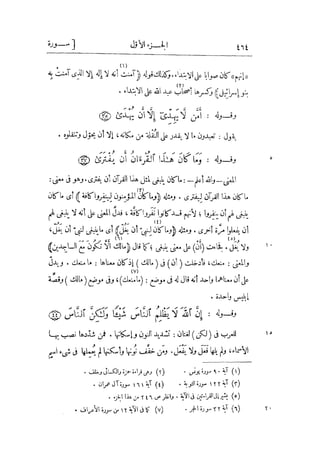 ٤٦٤ الجـزء الأول [ ســورة
«إنهم» كان صوابا على الابتداء. وكذلك قوله (آمنت أنه لا إله إلا الذى آمنت به (١)
بنو إسرائيل) وكسرها أصحاب عبد الله على الابتداء. (٢)
وقـوله : أَمَّن لَّا يَهِدِّي إِلَّا أَن يُهْدَىٰ ﴿٣٥﴾
يقول : تعبدون ما لا يقدر على النُّقلة من مكانه، إلا أن يحوّل وتنقلوه.
٥ وقـوله : وَمَا كَانَ هَٰذَا الْقُرْءَانُ أَن يُفْتَرَىٰ ﴿٣٧﴾
المعنى ــ والله أعلم ــ : ما كان ينبغى لمثل هذا القرآن أن يفترى. وهو فى معنى :
ما كان هذا القرآن ليفترى. ومثله (وما كان المؤمنون لينفروا كافة) أى ما كان (٣)
ينبغى لهم أن ينفروا؛ لأنهم قد كانوا نفروا كافّة، فدلّ المعنى على أنه لا ينبغى لهم
أن يفعلوا مرّة أخرى. ومثله (وما كان لنبىّ أن يغلّ) أى ما ينبغى لنبىّ أن يغلّ، (٤)
١٠ ولا يغلّ. فجاءت (أن) على معنى ينبغى؛ كما قال (مالك ألّا تكون مع الساجدين) (٥) (٦)
والمعنى : منعك، فأدخلت (أن) فى (مالك) إذ كان معناها : ما منعك. ويدلّ
على أن معناهما واحد أنه قال له فى موضع : (ما منعك)، وفى موضع (مالك) وقصّة (٧)
إبليس واحدة.
وقـوله : إِنَّ اللَّهَ لَا يَظْلِمُ النَّاسَ شَيْئًا وَلَٰكِنَّ النَّاسَ ﴿٤٤﴾
١٥ للعرب فى (لكنّ) لغتان : تشديد النون وإسكانها. فمن شدّدها نصب بهـا
الأسماء، ولم يلها فَعَل ولا يَفْعل. ومن خفّف نونها وأسكنها لم يعملها فى شىء اسم
(١) آية ٩٠ سورة يونس . (٢) وهى قراءة حمزة والكسائى وخلف .
(٣) آية ١٢٢ سورة التوبة . (٤) آية ١٦١ سورة آل عمران .
(٥) يشير إلى القراءتين فى الآية . وانظر ص ٢٤٦ من هذا الجزء .
٢٠ (٦) آية ٣٢ سورة الحجر . (٧) كما فى الآية ١٢ من سورة الأعراف .